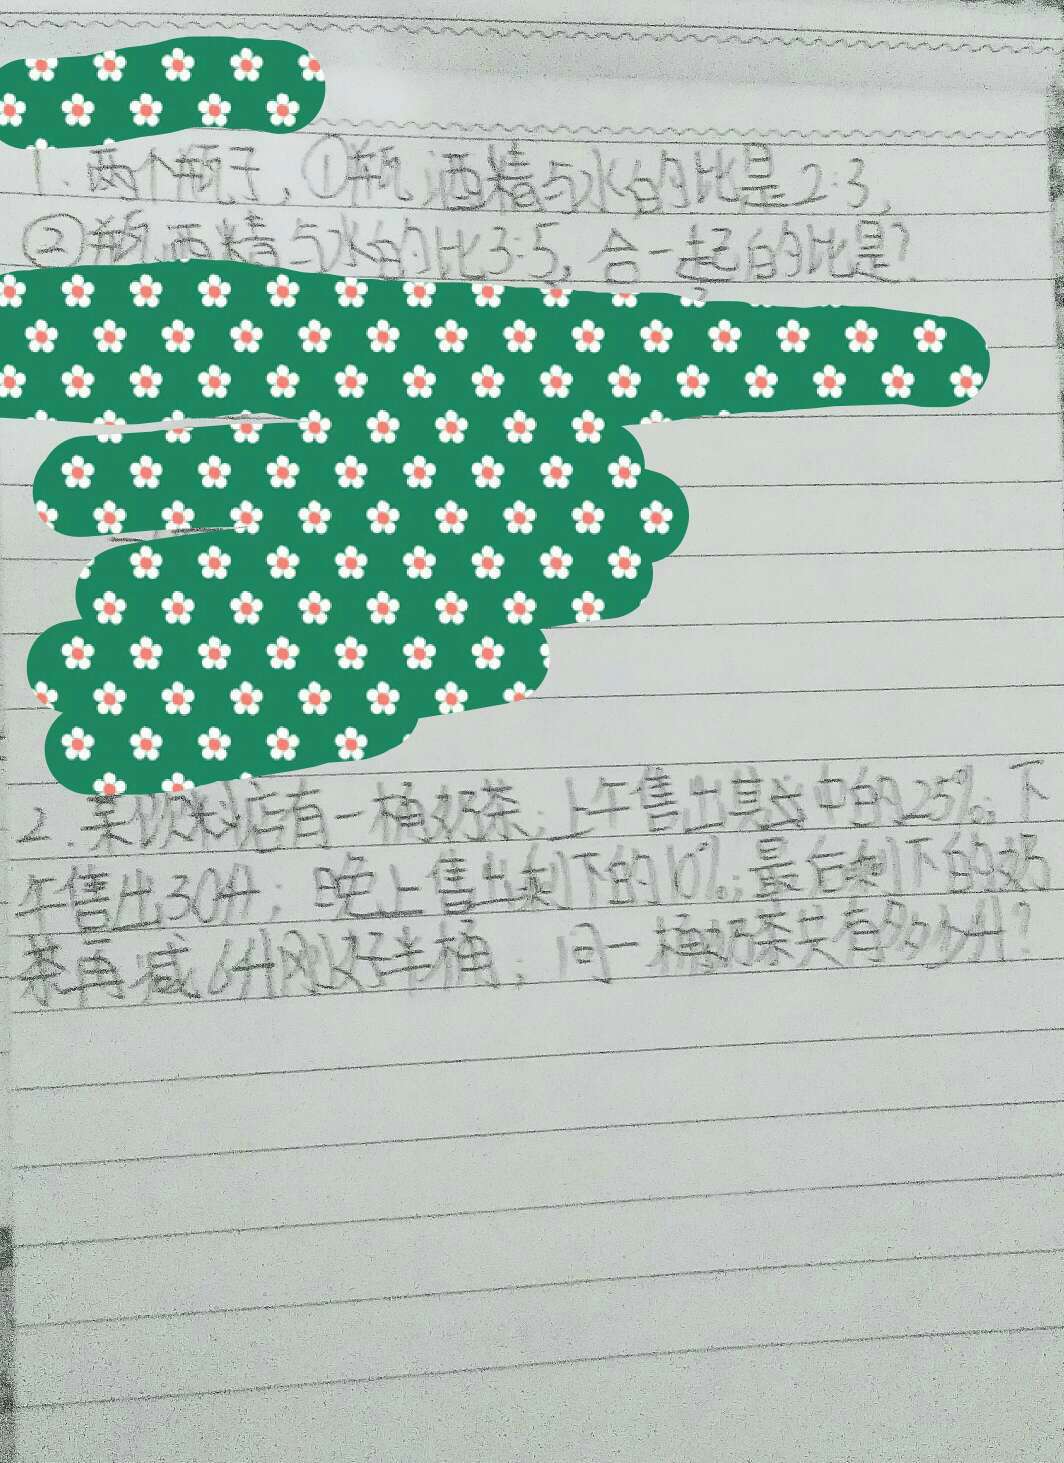 1. 两个瓶子，①瓶酒精与水的比是2:3，
②瓶酒精与水的比3:5，合一起的比是？
2. 某饮料店有一桶奶茶；上午售出其中的25%；下
午售出30升；晚上售出剩下的10%；最后剩下的奶
茶再减6升刚好半桶；问一桶奶茶共有多少升？